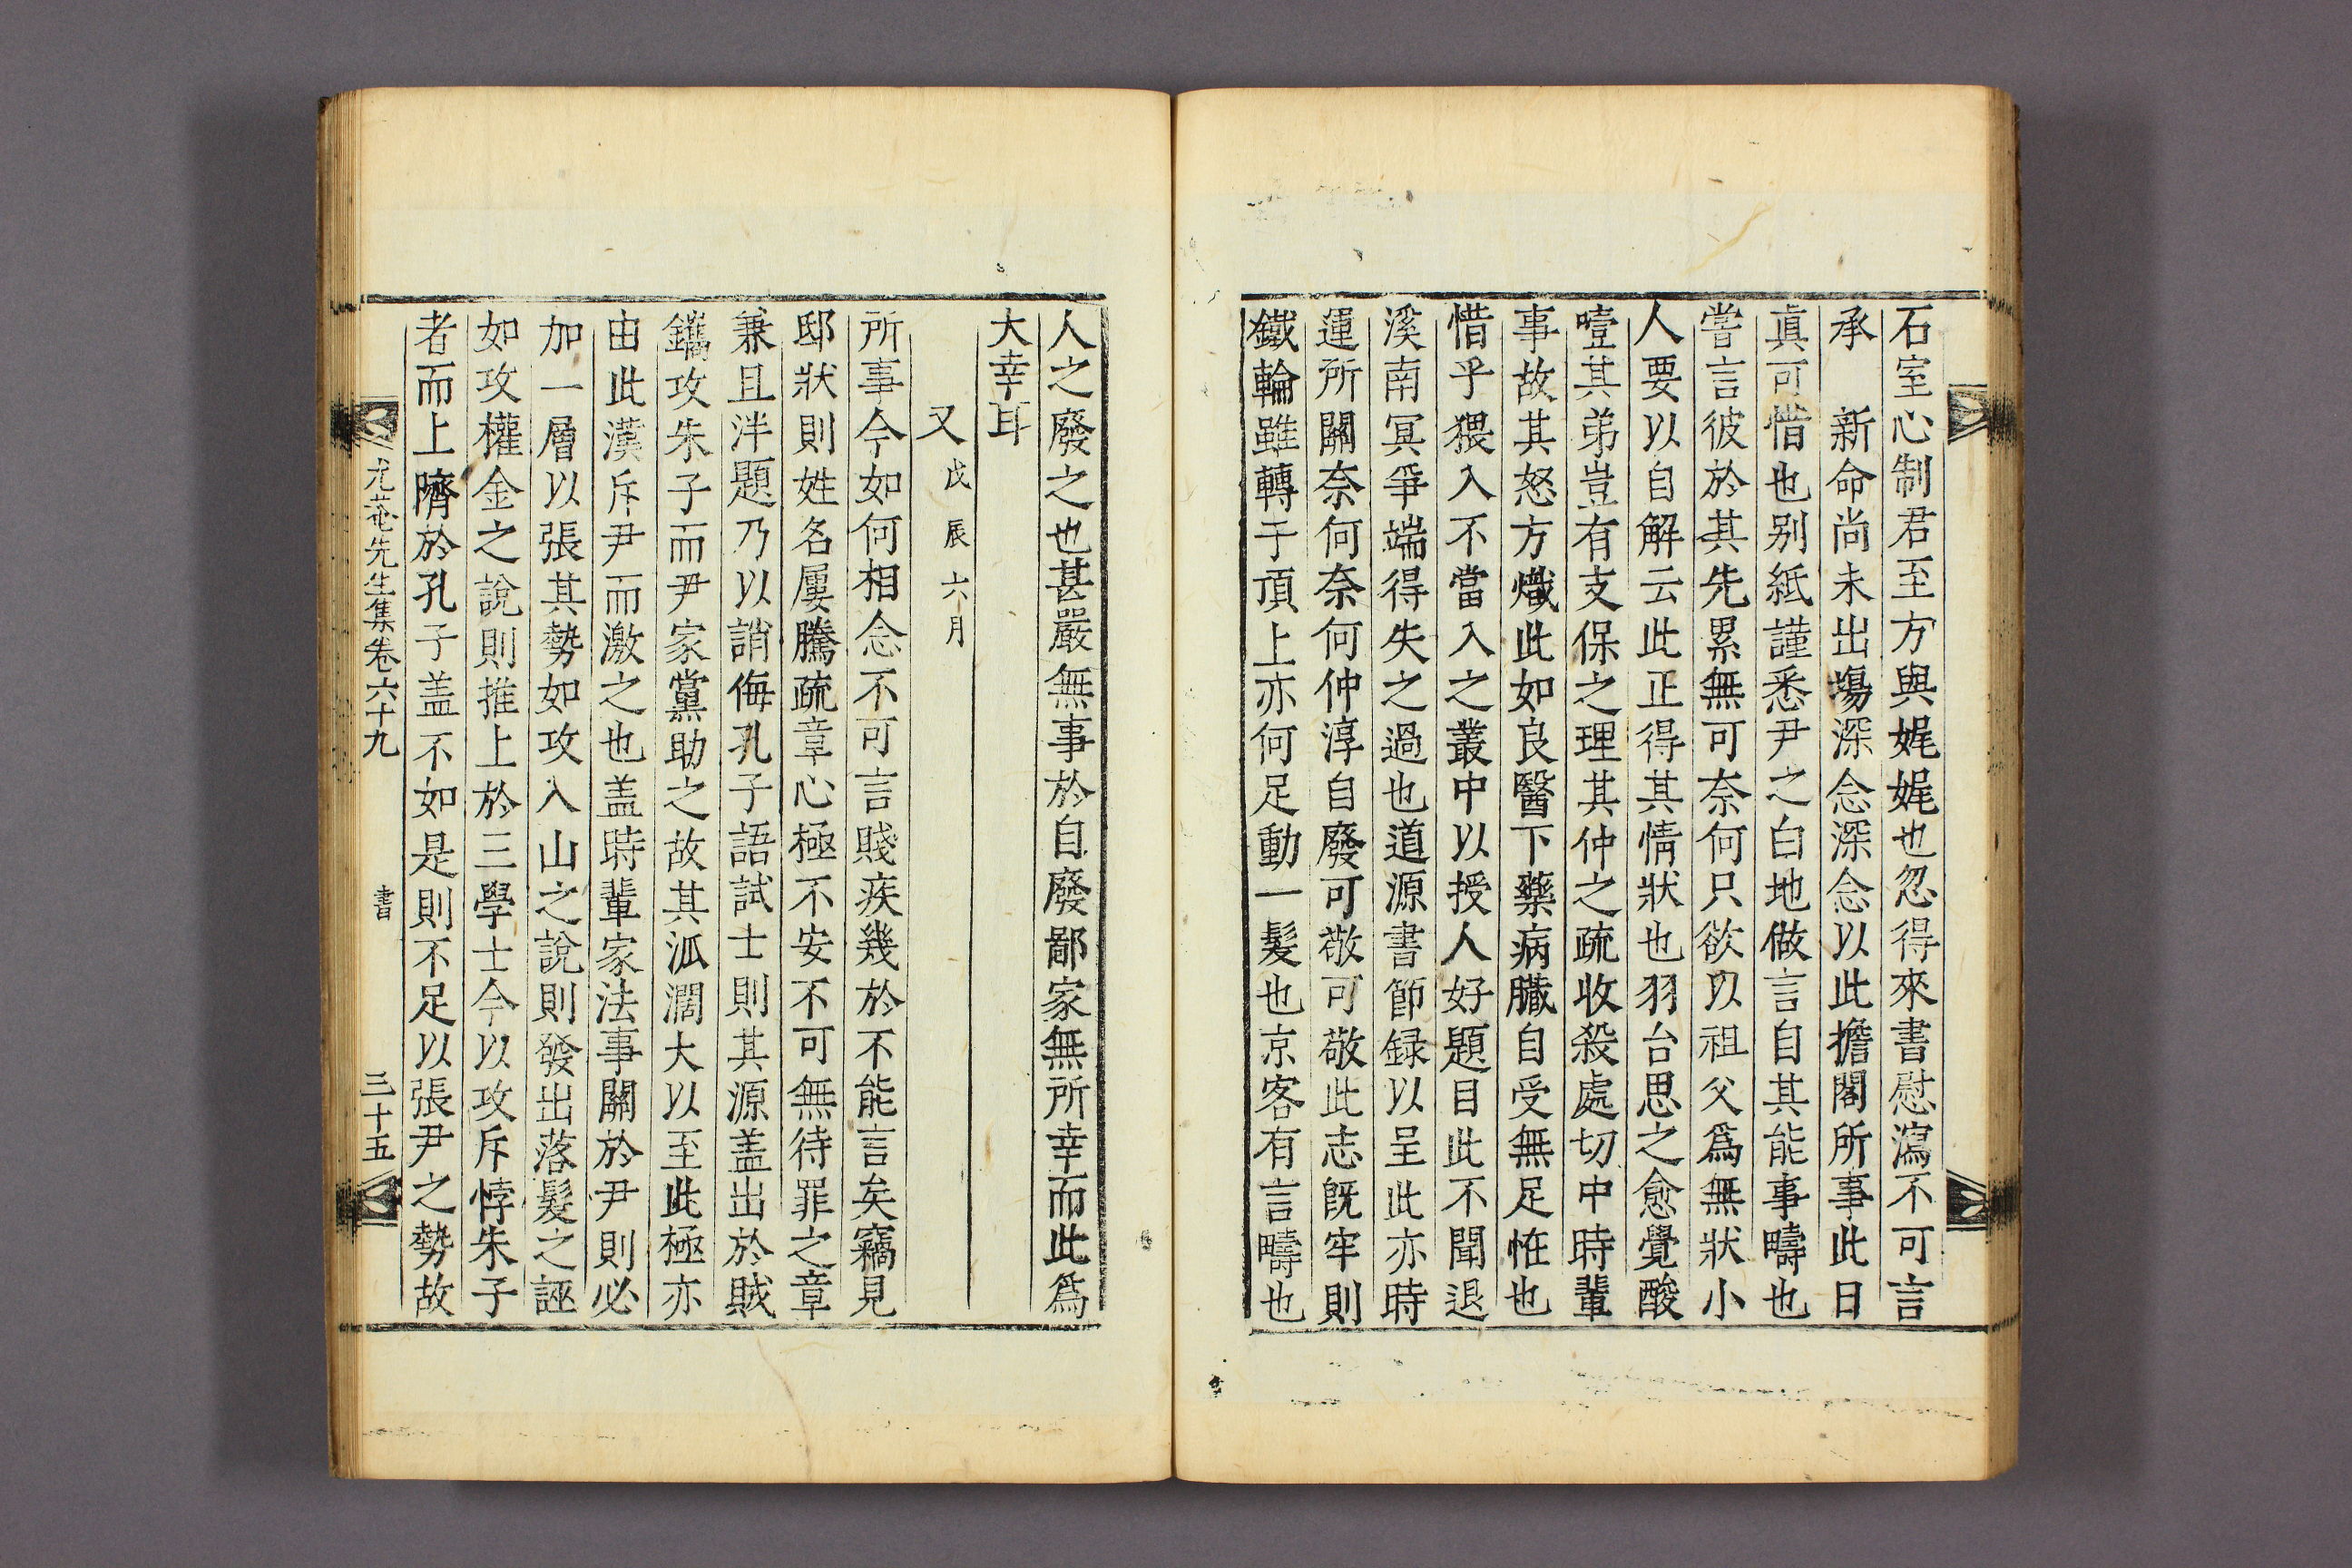 石室心制君至方與娓娓也忽得來書慰瀉不可言
承　新命尚未出塲深念深念以此擔閣所事此日
眞可惜也別紙謹悉尹之白地做言自其能事疇也
嘗言彼於其先累無可奈何只欲以祖父爲無狀小
人要以自解云此正得其情狀也羽台思之愈覺酸
噎其弟豈有支保之理其仲之疏收殺處切中時輩
事故其怒方熾此如良醫下藥病臟自受無足恠也
惜乎猥入不當入之叢中以授人好題目此不聞退
溪南冥爭端得失之過也道源書節録以呈此亦時
運所關奈何奈何仲淳自廢可敬可敬此志旣牢則
鐵輪雖轉于頂上亦何足動一髮也京客有言疇也
人之廢之也甚嚴無事於自廢鄙家無所幸而此爲
大幸耳
又 戊辰六月
所事今如何相念不可言賤疾幾於不能言矣竊見
邸狀則姓名屢騰疏章心極不安不可無待罪之章
兼且泮題乃以誚侮孔子語試士則其源盖出於賊
鑴攻朱子而尹家黨助之故其派濶大以至此極亦
由此漢斥尹而激之也盖時輩家法事關於尹則必
加一層以張其勢如攻入山之說則發出落髮之誣
如攻權金之說則推上於三學士今以攻斥悖朱子
者而上隮於孔子盖不如是則不足以張尹之勢故
尤菴先生集卷六十九　書　三十五